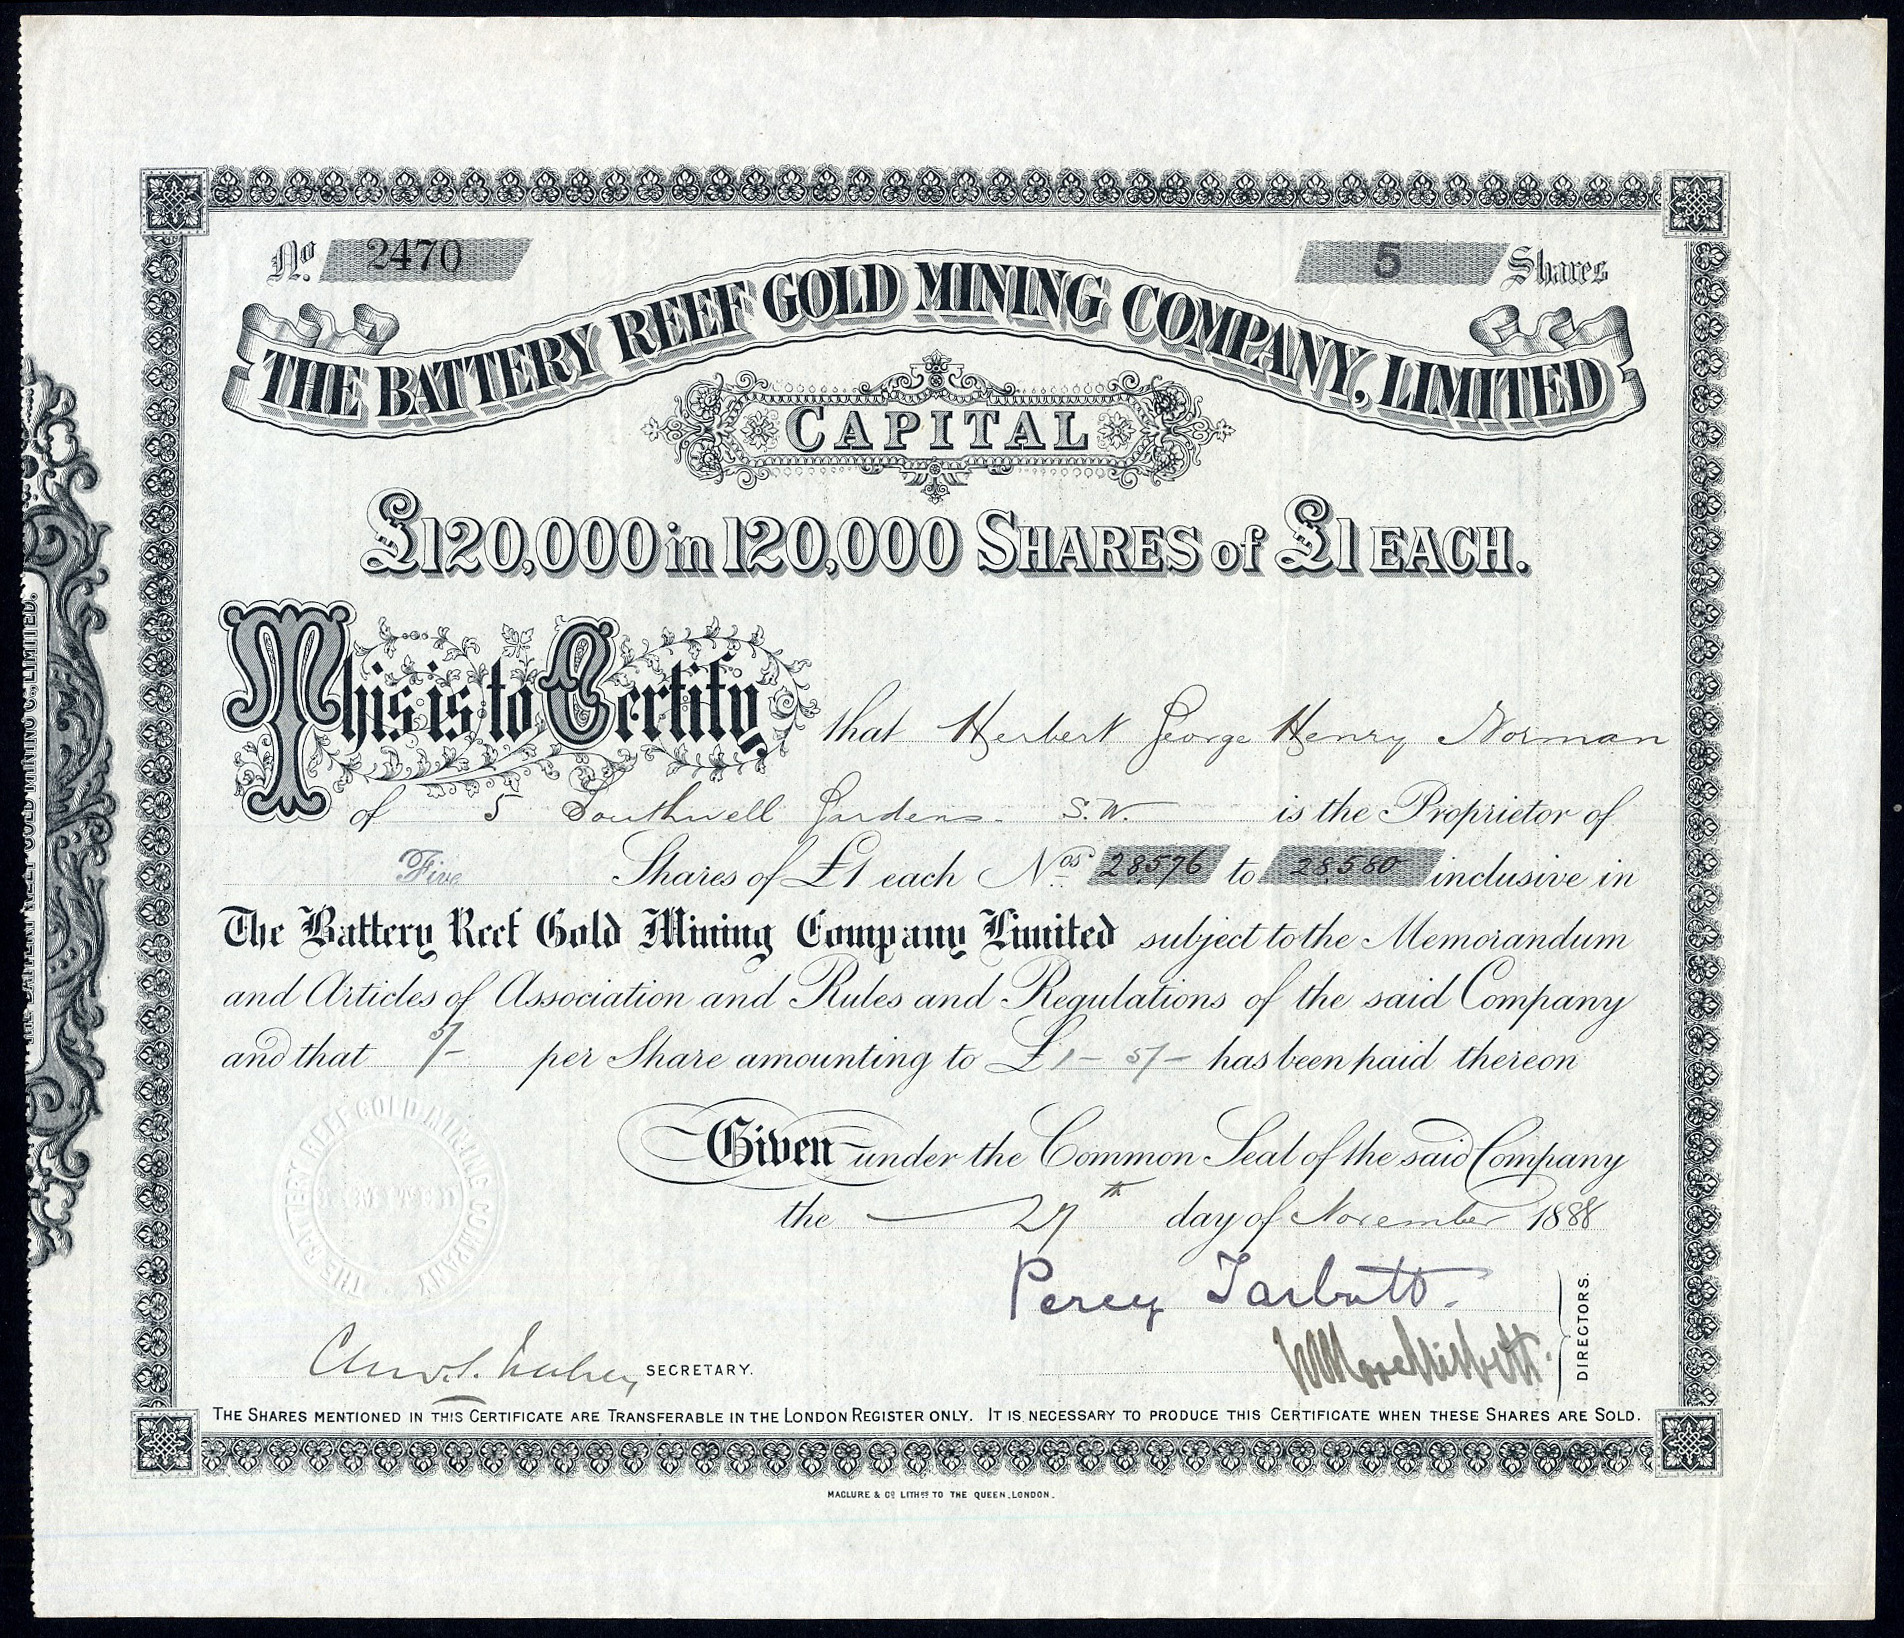 No. 2470
5 Shares
THE BATTERY REEF GOLD MINING COMPANY, LIMITED
CAPITAL
£120,000 in 120,000 SHARES of £1 EACH.
This is to Certify that Herbert George Henry Norman
of 5 Southwell Gardens. S.W. is the Proprietor of
Five Shares of £1 each Nos. 28576 to 28580 inclusive in
The Battery Reef Gold Mining Company Limited subject to the Memorandum
and Articles of Association and Rules and Regulations of the said Company
and that 5/- per Share amounting to £1-5/- has been paid thereon
Given under the Common Seal of the said Company
the 27th day of November 1888
THE BATTERY REEF GOLD MINING COMPANY
LIMITED
Percy Tarbutt.
DIRECTORS.
SECRETARY.
THE SHARES MENTIONED IN THIS CERTIFICATE ARE TRANSFERABLE IN THE LONDON REGISTER ONLY. IT IS NECESSARY TO PRODUCE THIS CERTIFICATE WHEN THESE SHARES ARE SOLD.
MACLURE & Co. LITHrs TO THE QUEEN, LONDON.
THE BATTERY REEF GOLD MINING Co., LIMITED.